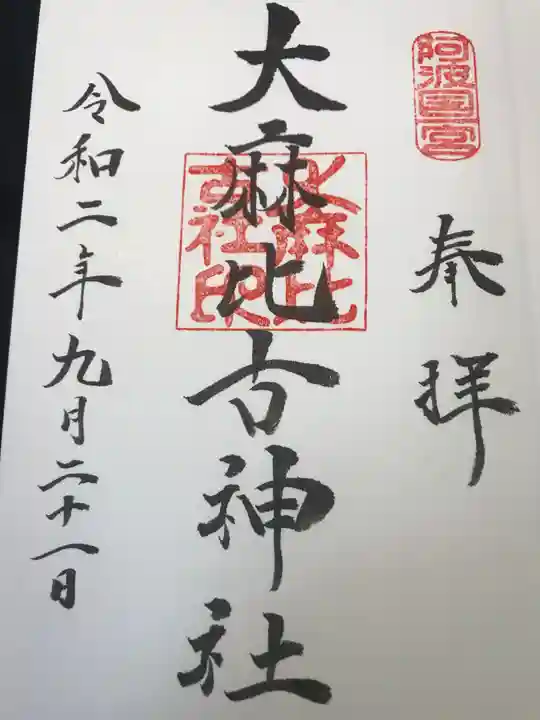 阿波一宮
奉拝
大麻比古神社
大麻比
古社印
令和二年九月二十一日